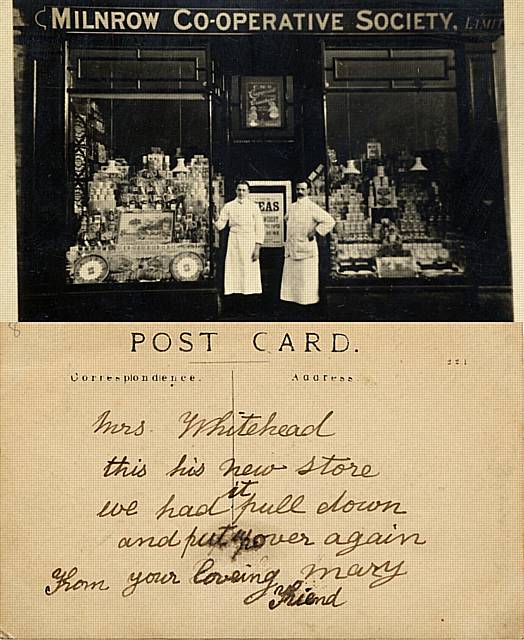 MILNROW CO-OPERATIVE SOCIETY, LIMIT
EAS
8
POST CARD.
221
Correspondence.
Address.
Mrs. Whitehead
this his new store
we had it pull down
and put up over again
From your loveing mary
Friend